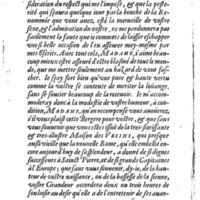 sideration du respect qui me l'impose, & que la posterité
qui sçaura quelque iour par la bouche de la Renommée
que vous auez, esté la merueille de vostre
sexe, & l'admiration de nostre, ne me pardonnera pas
facilement la faute que ie commets de laisser eschapper
vne si belle occasion de l'en asseurer moy-mesme par
mes Escrits. Auec tout cela, MADAME, i'aurois
mieux aimé encourir le blasme de tout le monde,
que me mettre seulement au hazard de vous fascher.
Ie sçay fort bien qu'vne pure & haute vertu
comme la vostre se contente de meriter la loüange,
sans se soucier beaucoup de la receuoir. Ie m'accommoderay
donc à la modestie de vostre humeur, à
condition, MADAME, qu'en recompense vous aimerez,
s'il vous plaist cette Bergere pour
sans vous souuenir que vous estes issuë de la tres-
& tres-illustre Maison des VRSINS, qui
qu'vne fois que la nouuelle Rome, qui elle embellit encore
auiourd'huy de sa splendeur, a donné de si dignes
successeurs à Sainct Pierre, & de si grands Capitaines
à l'Europe, que sans vous souuenir, dy-ie, de la hauteur
de vostre naissance, ny de la bassesse de la sienne,
vostre Grandeur accordera deux ou trois heures de
son loisir au desir qu'elle a de l'entretenir de ses affe-